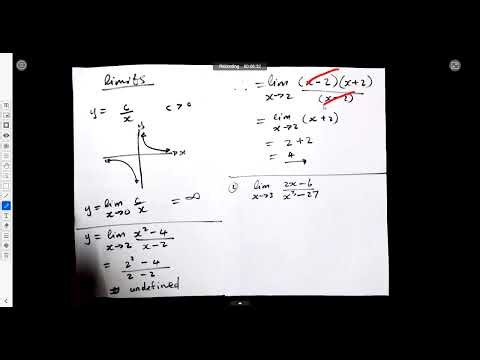 Recording 00:06:52
limits
y = c/x c > 0
y
x
y = lim x→0 c/x = ∞
y = lim x→2 x² - 4 / x - 2
= 2² - 4 / 2 - 2
undefined
∴ = lim x→2 (x - 2)(x + 2) / (x - 2)
= lim x→2 (x + 2)
= 2 + 2
= 4
② lim x→3 2x - 6 / x³ - 27